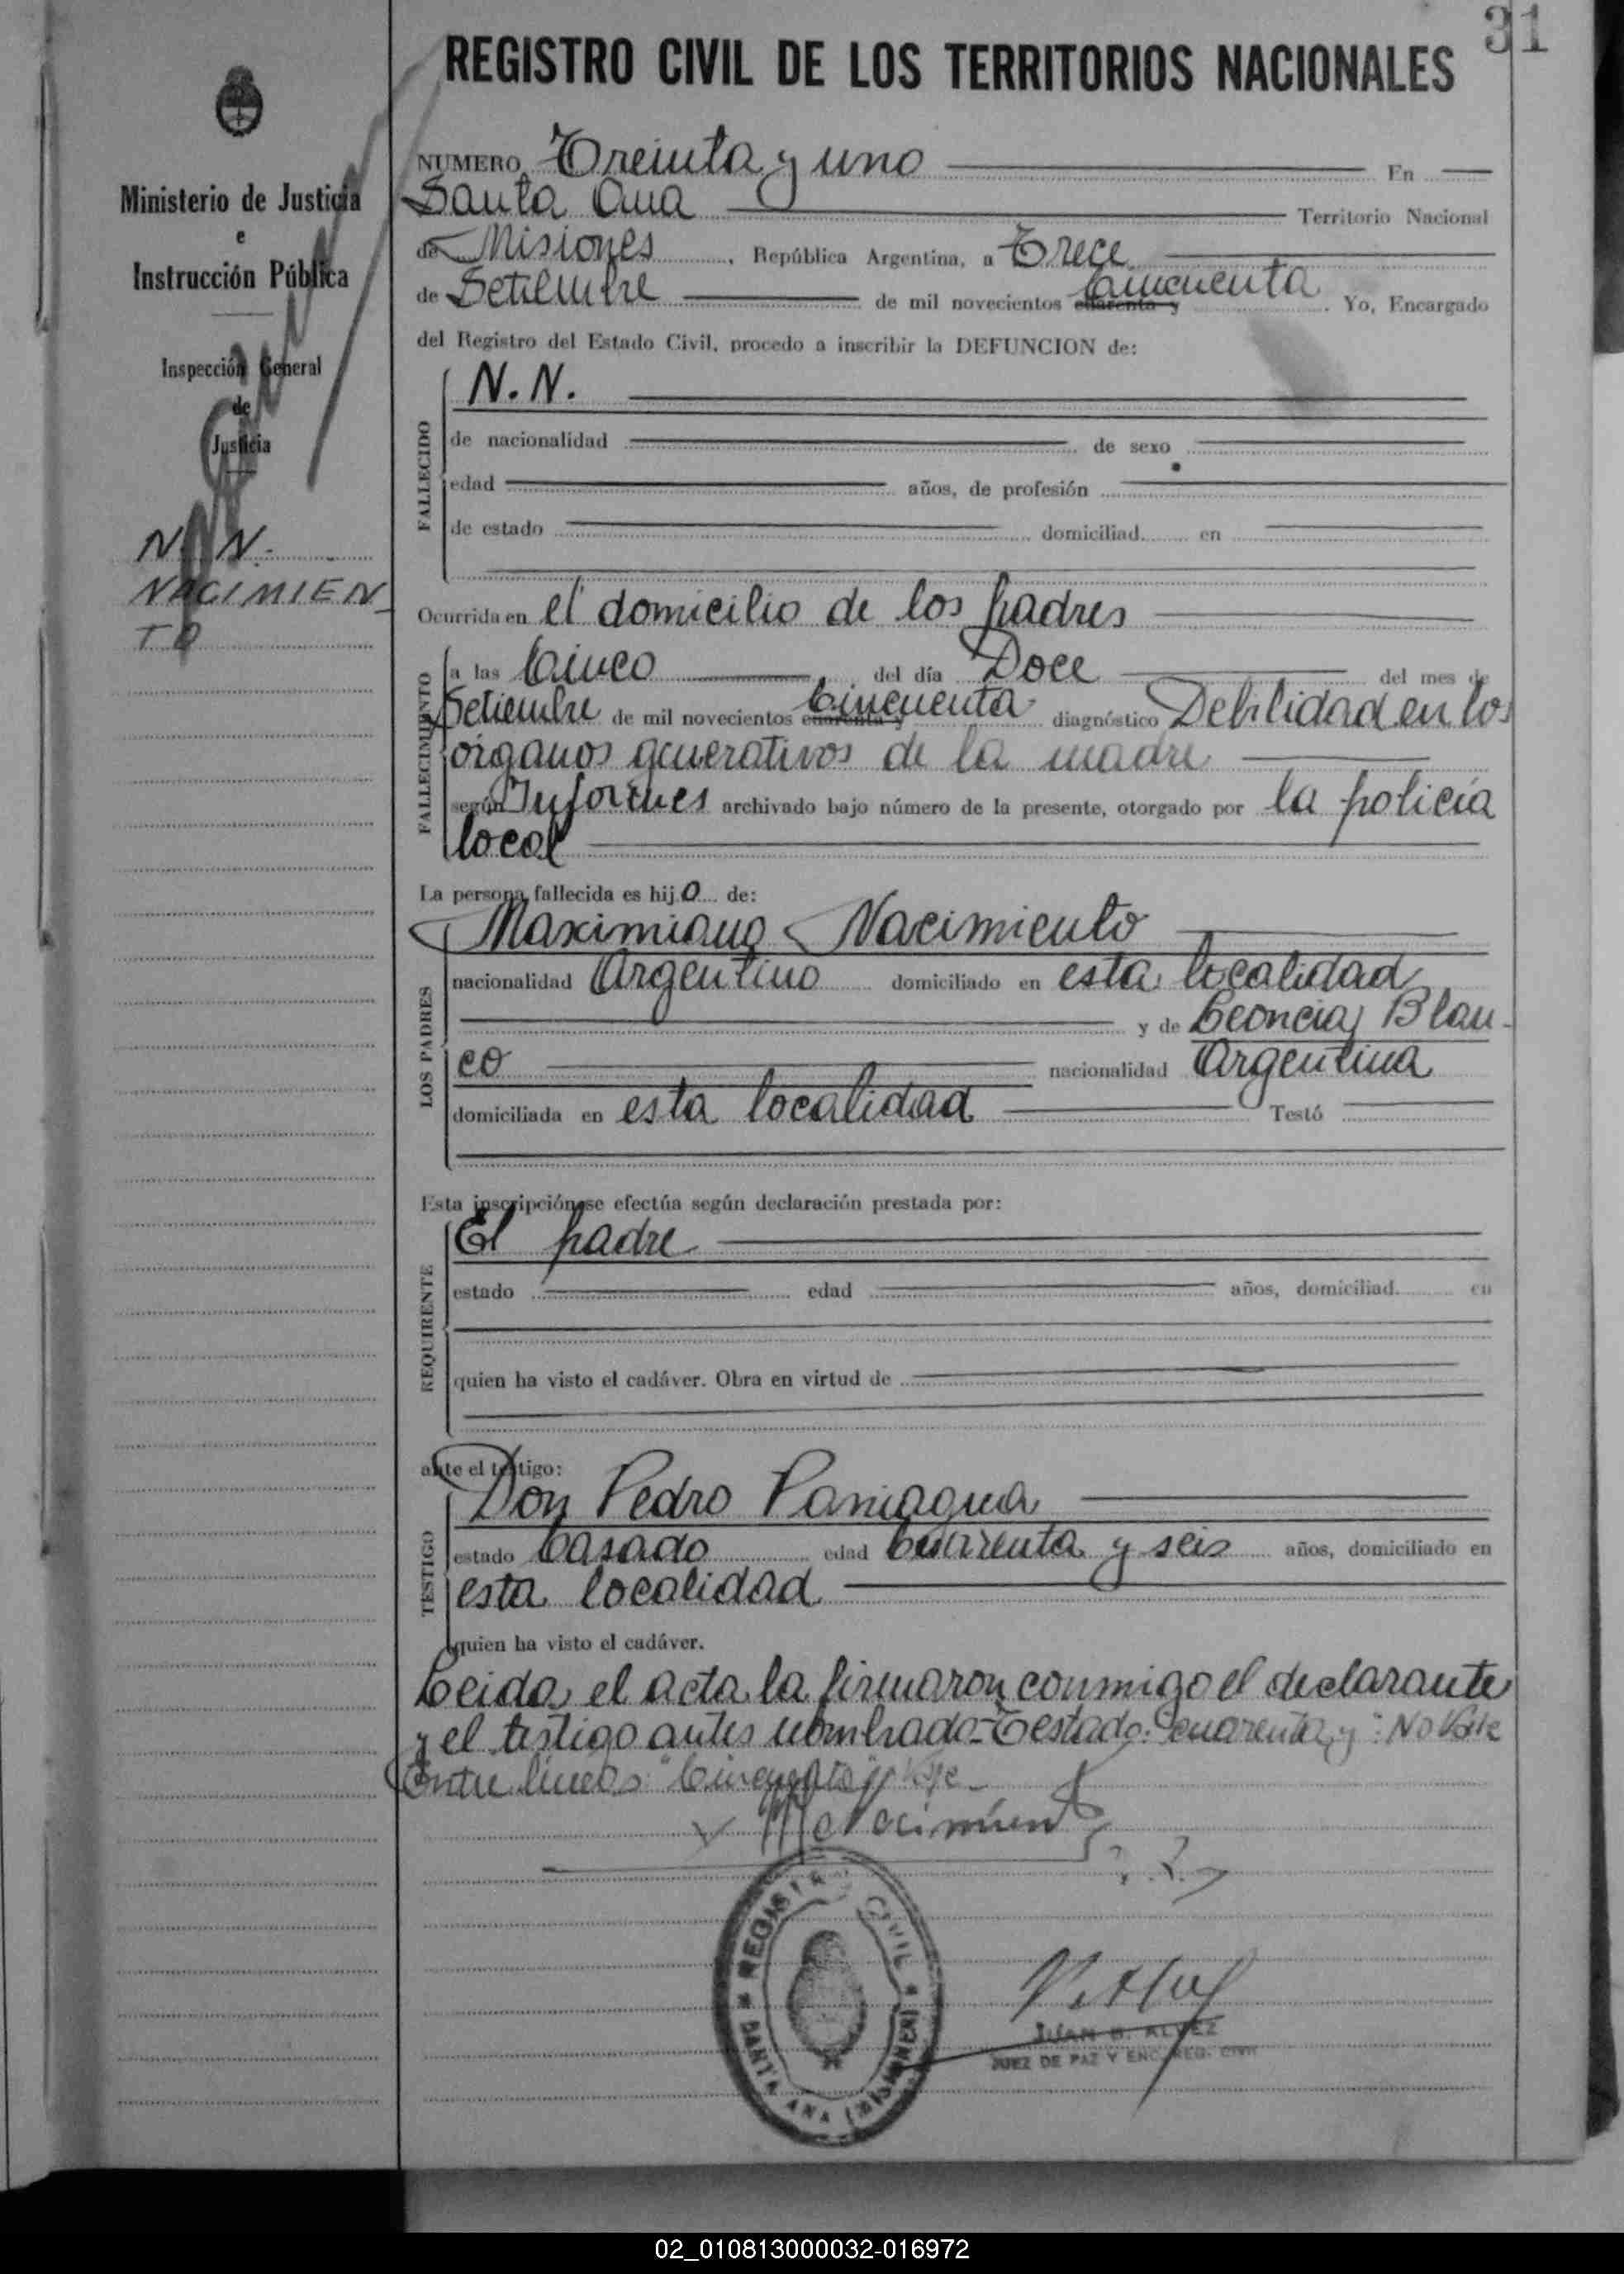 31
REGISTRO CIVIL DE LOS TERRITORIOS NACIONALES
Ministerio de Justicia
e
Instrucción Pública
Inspección General
de
Justicia
N. N.
NACIMIEN-
TO
NUMERO Treinta y uno En
Santa Ana Territorio Nacional
de Misiones, República Argentina, a Trece
de Setiembre de mil novecientos cuarenta y Cincuenta. Yo, Encargado
del Registro del Estado Civil, procedo a inscribir la DEFUNCION de:
FALLECIDO
N. N.
de nacionalidad de sexo
edad años, de profesión
de estado domiciliad en
Ocurrida en el domicilio de los padres
FALLECIMIENTO
a las Cinco del día Doce del mes de
Setiembre de mil novecientos cuarenta y Cincuenta diagnóstico Debilidad en los
órganos generativos de la madre
según Informes archivado bajo número de la presente, otorgado por la policía
local
La persona fallecida es hijo de:
LOS PADRES
Maximiano Nacimiento
nacionalidad Argentino domiciliado en esta localidad
y de Leoncia Blan-
co nacionalidad Argentina
domiciliada en esta localidad Testó
Esta inscripción se efectúa según declaración prestada por:
REQUIRENTE
El padre
estado edad años, domiciliad en
quien ha visto el cadáver. Obra en virtud de
ante el testigo:
TESTIGO
Don Pedro Paniagua
estado Casado edad Cuarenta y seis años, domiciliado en
esta localidad
quien ha visto el cadáver.
Leida el acta la firmaron conmigo el declarante
y el testigo antes nombrado-Testado: "cuarenta y": No Vale
Entre lineas "Cincuenta" Vale-
Nacimiento
REGISTRO CIVIL
SANTA ANA (MISIONES)
JUAN B. ALVEZ
JUEZ DE PAZ Y ENC. REG. CIVIL
02_010813000032-016972